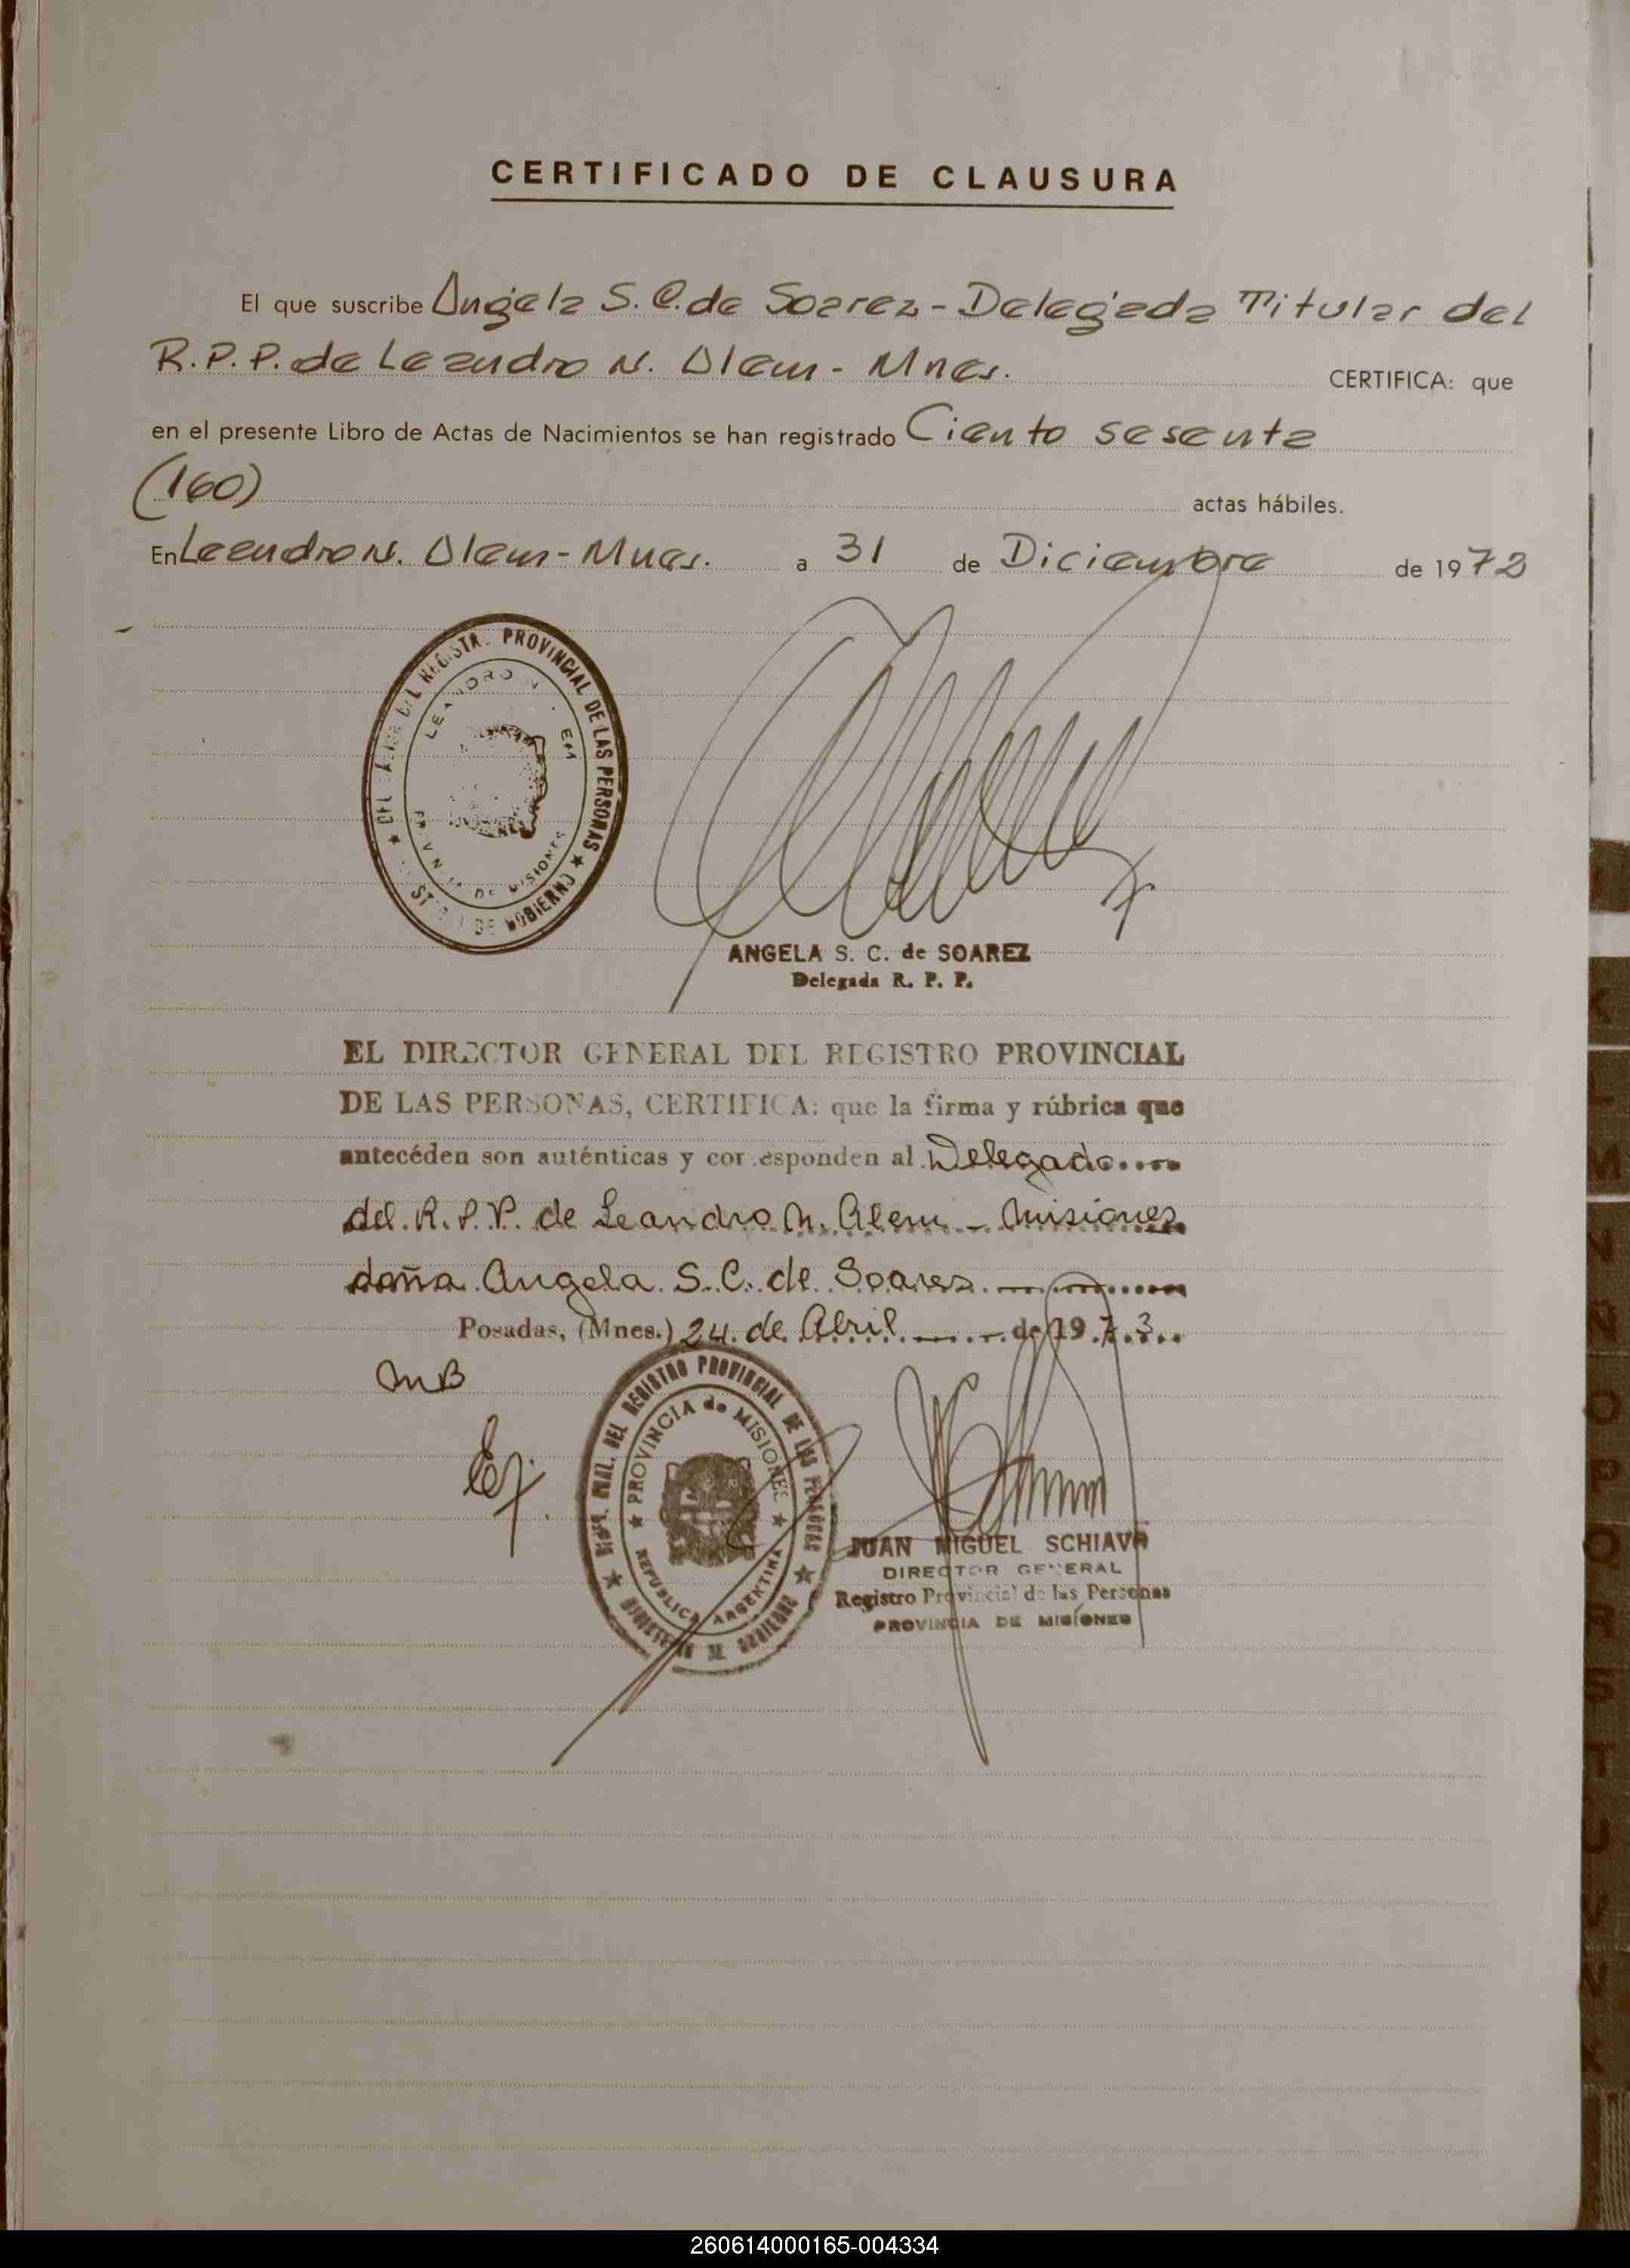 CERTIFICADO DE CLAUSURA
El que suscribe Angela S. C. de Soarez - Delegada Titular del
R.P.P. de Leandro N. Alem - Mnes. CERTIFICA: que
en el presente Libro de Actas de Nacimientos se han registrado Ciento sesenta
(160) actas hábiles.
En Leandro N. Alem - Mnes. a 31 de Diciembre de 1972
PROVINCIAL DE LAS PERSONAS ★
DE GOBIERNO
LEANDRO N.
DE MISIONES
ANGELA S. C. de SOAREZ
Delegada R. P. P.
EL DIRECTOR GENERAL DEL REGISTRO PROVINCIAL
DE LAS PERSONAS, CERTIFICA: que la firma y rúbrica que
antecéden son auténticas y corresponden al Delegado
del R.P.P. de Leandro N. Alem - Misiones
doña Angela S. C. de Soarez.
Posadas, (Mnes.) 24 de Abril de 1973
MB
GRAL. DEL REGISTRO PROVINCIAL DE LAS PERSONAS
★ MINISTERIO DE GOBIERNO ★
★ PROVINCIA de MISIONES ★
REPUBLICA ARGENTINA
JUAN MIGUEL SCHIAVO
DIRECTOR GENERAL
Registro Provincial de las Personas
PROVINCIA DE MISIONES
K
L
M
N
Ñ
O
P
Q
R
S
T
U
V
260614000165-004334